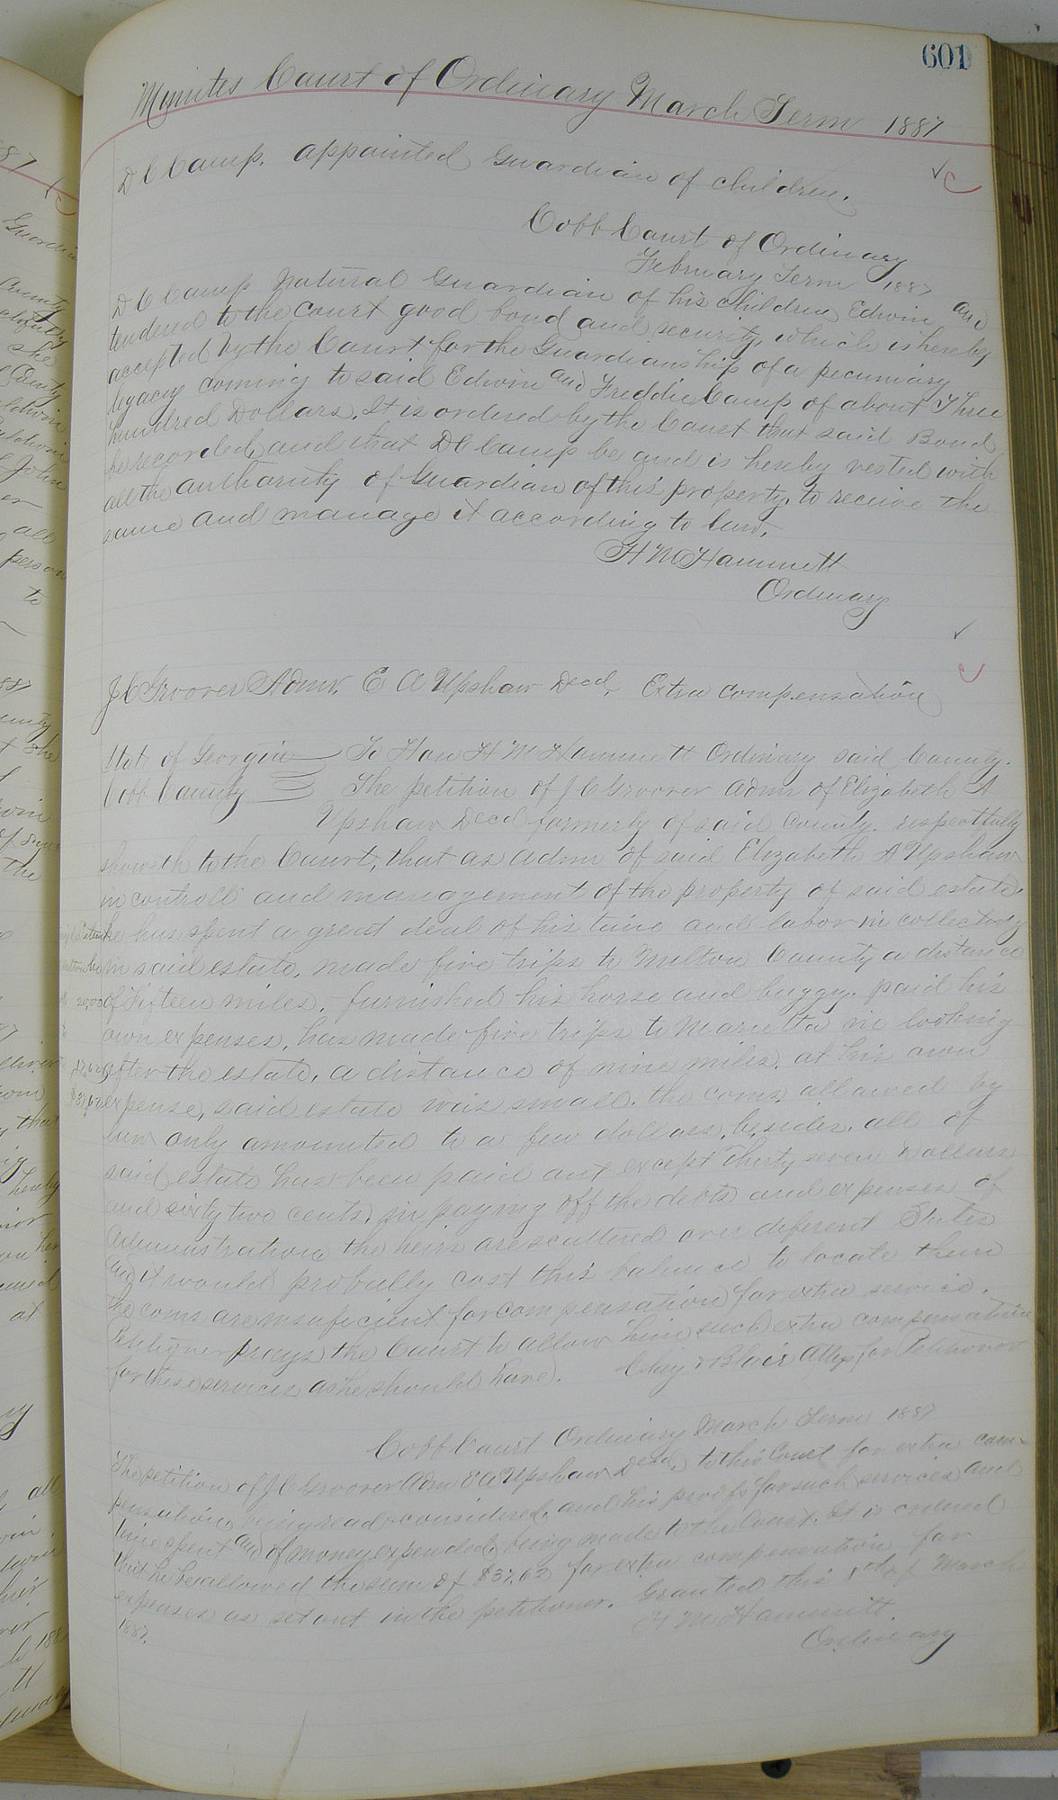 601
Minutes Court of Ordinary March Term 1887
D C Camp. appointed Guardian of children.
Cobb Court of Ordinary
February Term 1887
D C Camp natural Guardian of his children Edwin and
tendered to the court good bond and security, which is hereby
accepted by the Court for the Guardianship of a pecuniary
legacy coming to said Edwin and Freddie Camp of about Three
hundred Dollars. It is ordered by the Court that said Bond
be recorded, and that D C Camp be and is hereby vested with
all the authority of Guardian of this property, to receive the
same and manage it according to law.
H M Hammett
Ordinary
J C Groover Admr. E A Upshaw Decd, Extra compensation
Stat of Georgia To Hon H M Hammett Ordinary said County.
Cobb County The petition of J C Groover Admr of Elizabeth A
Upshaw Decd formerly of said County. respectfully
showeth to the Court, that as Admr of said Elizabeth A Upshaw
in controll and management of the property of said estate.
he has spent a great deal of his time and labor in collecting
in said estate. made five trips to Milton County a distance
of fifteen miles. furnished his horse and buggy. paid his
own expenses, has made five trips to Marietta in looking
after the estate, a distance of nine miles. at his own
expense, said estate was small. the coms. allowed by
law only amounted to a few dollars, besides. all of
said estate has been paid out except Thirty seven dollars
and sixty two cents. in paying off the debts and expenses of
Administration the heirs are scattered over diferent States
and it would probally cost this balance to locate them
The coms are insuficient for compensation for extra service.
Petitioner prays the Court to allow him such extra compensation
for these services as he should have. Clay & Blair Attys for Petitioner
Cobb Court Ordinary March Term 1887
The petition of J C Groover Adm E A Upshaw Decd. to this Court for extra com-
pensation being read & considered, and his proofs for such services and
time spent and of money expended being made to the Court. It is ordered
that he be allowed the sum of $37.62 for extra compensation for
expenses as set out in the petitioner. Granted this 8th of March
1887. H M Hammett
Ordinary